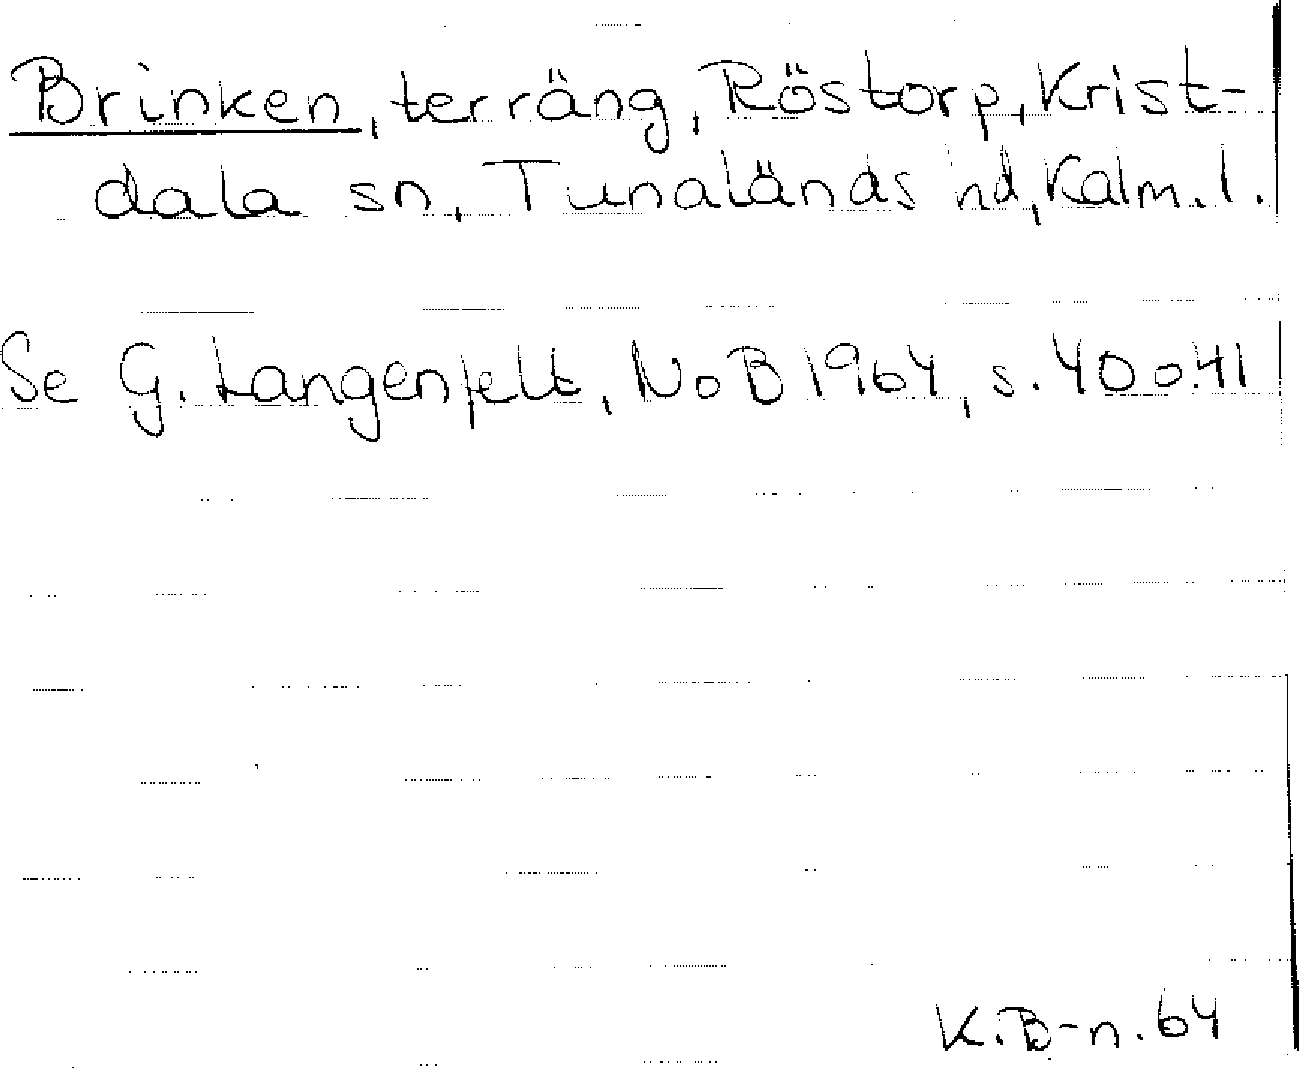 Brinken, terräng, Röstorp, Krist-
dala sn, Tunaläns hd, Kalm. l.
Se G. Langenfelt, NoB 1964, s. 40 o. 41
K.B-n. 64